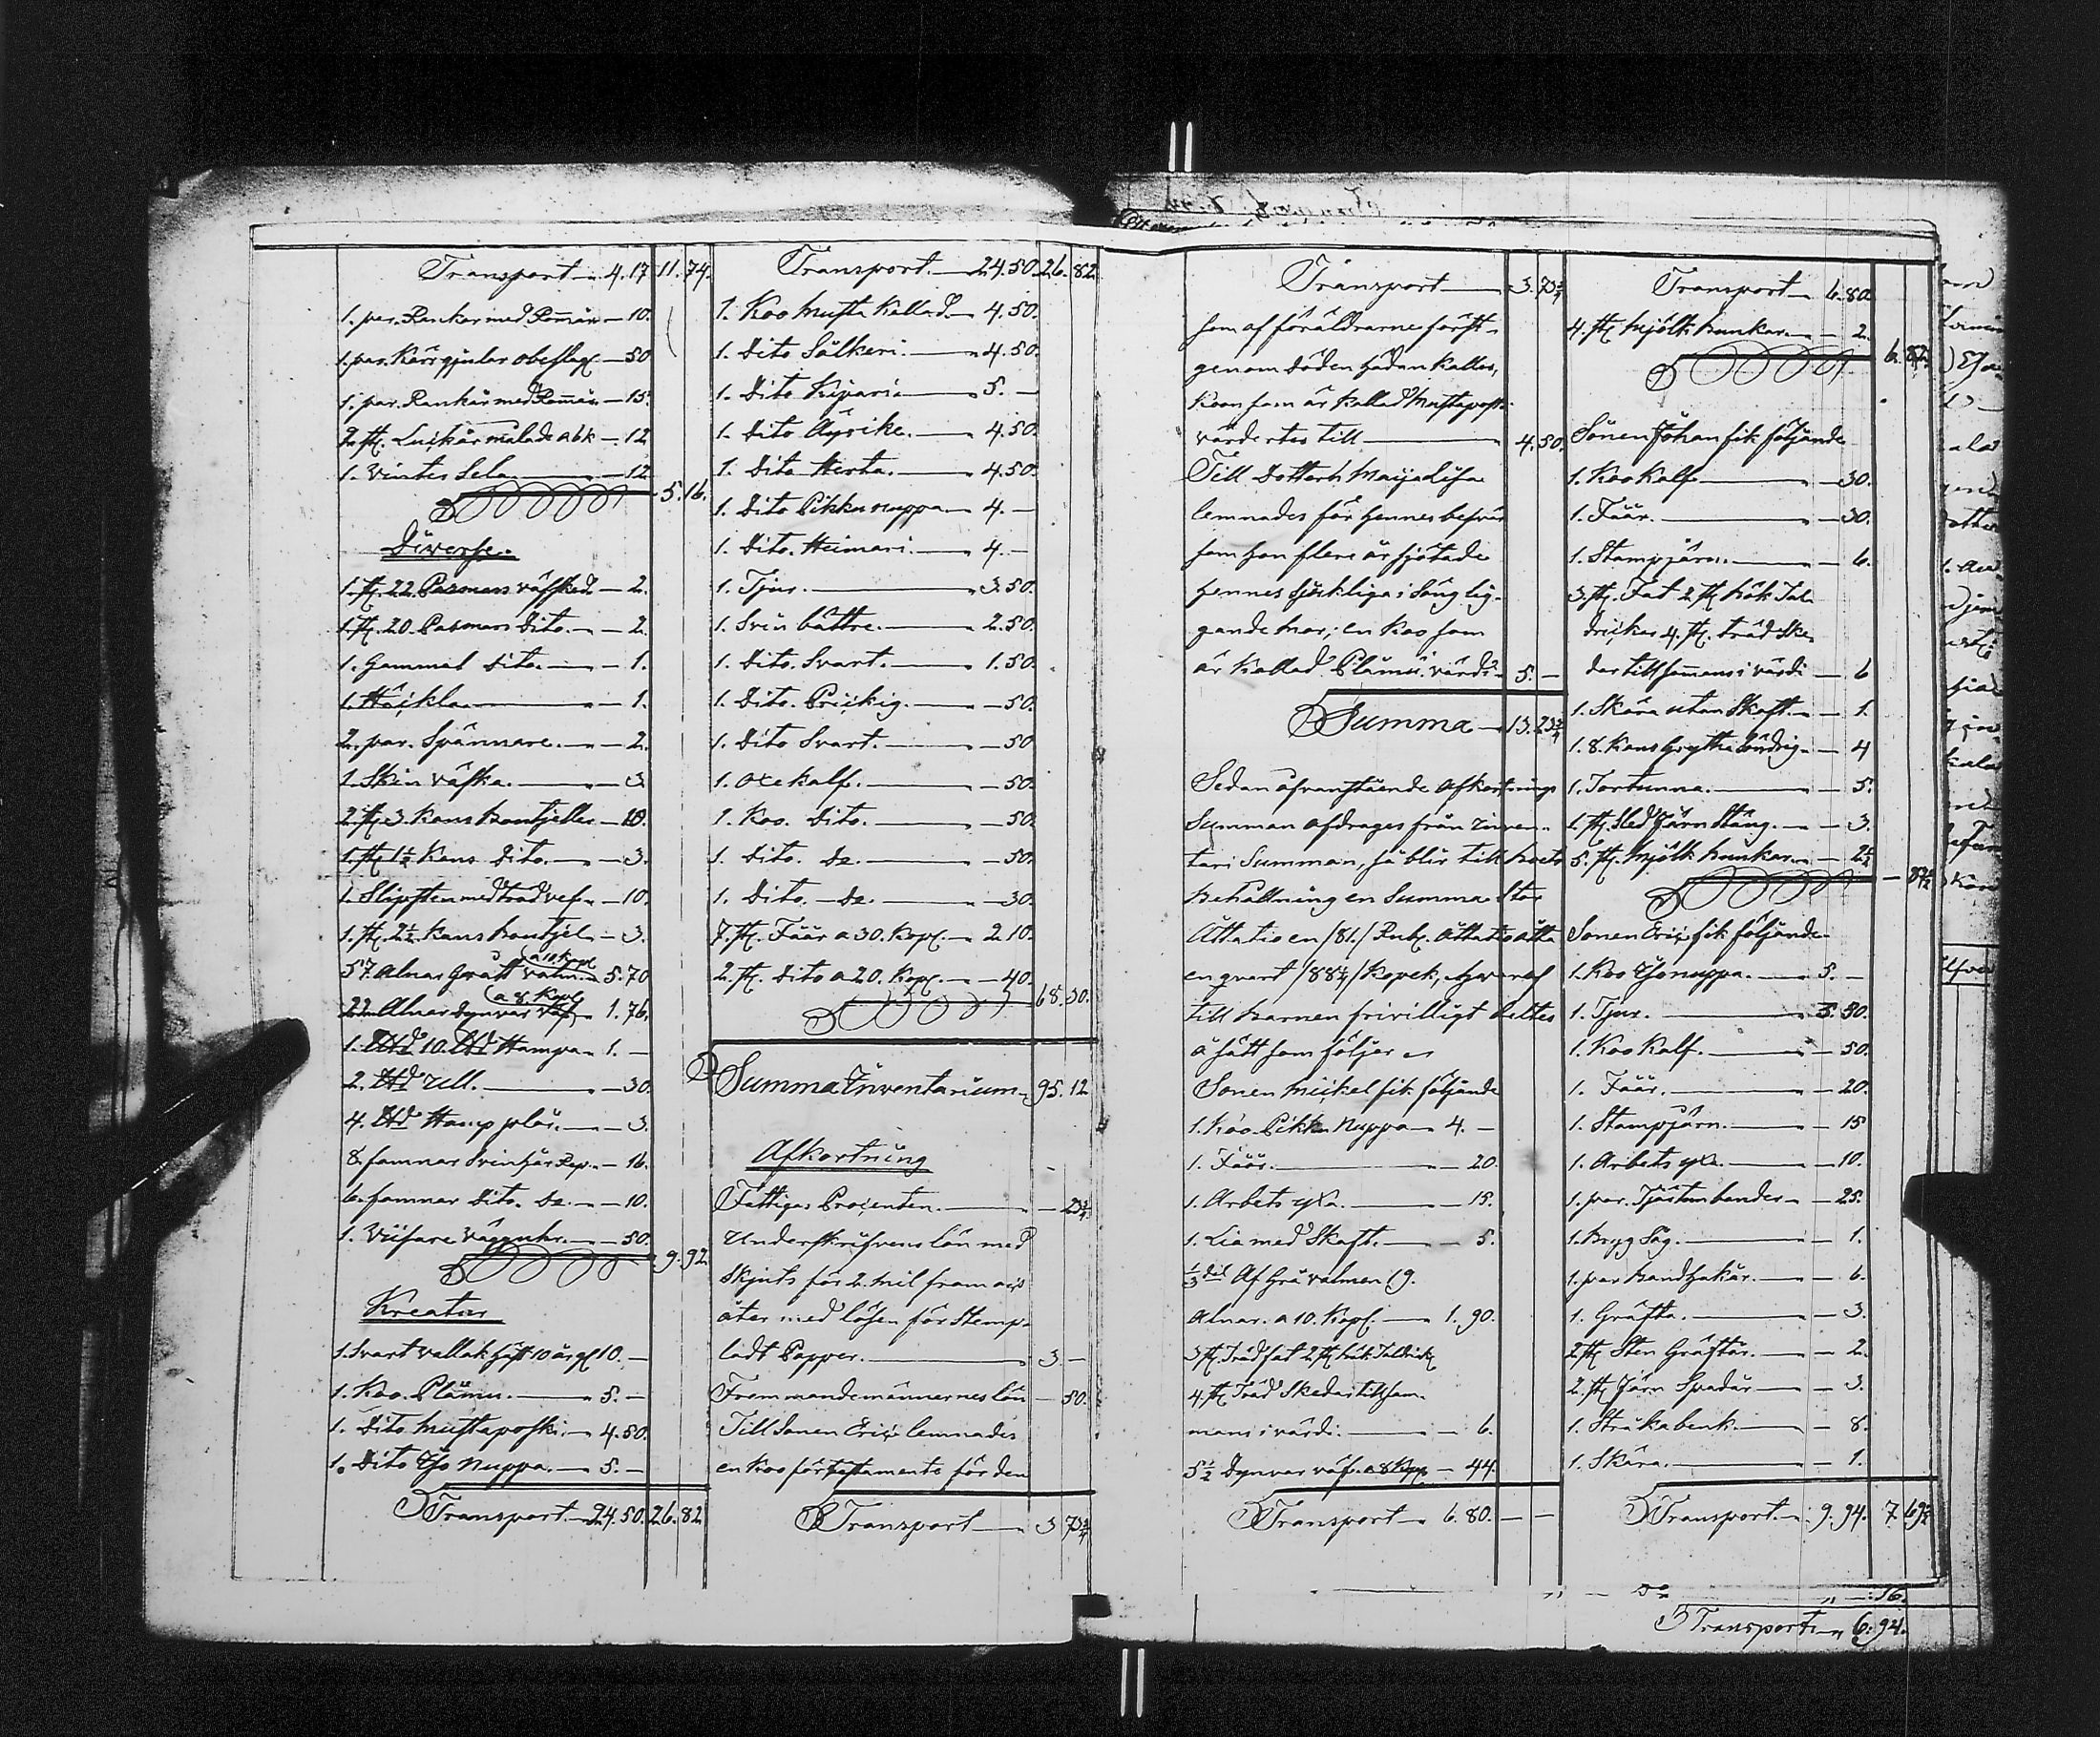 Transport 4.17 11.74.
1. par. Rankor med Rommar — 10.
1. par. Kärrgiular obeslag — 50
1. par. Rankar med Rommar — 15.
2. st. Luckar målade a 6 k — 12
1. Vinter Sela — 12
5.16.
Diverse.
1. st. 22. Pasmars väfsked — 2.
1. st. 20. Pasmars Dito. — 2.
1. Gammal Dito. — 1.
1. Häckla — 1.
2. par. Spännare. — 2.
1. Skin väska. — 3
2. st. 3. Kans Bontjeller — 10.
1. st. 1½ Kans Dito. — 3.
1. Slipsten med träd vef — 10.
1. st. 2½ Kans Bontjel — 3.
57. Alnar Grått valm. a 10 kop. 5.70
22. Alnar Dynvar väf a 8. Kop. 1.76.
1. L℔ 10. ℔ Hampa 1. —
2. ℔ Ull. — 30.
4. ℔ Hamp blår. — 3.
8. famnar Svinhår Rep. — 16.
6. famnar Dito. Do. — 10.
1. Visare vägguhr. — 50.
9.92
Kreatur
1. Svart vallak häst 10 år gl 10. —
1. Koo. Plämu. — 5. —
1. Dito Mustaposki. — 4.50.
1. Dito Iso Nuppa. — 5. —
Transport 24.50. 26.82
Transport. 24.50. 26.82
1. Koo Musta Kallad. 4.50.
1. Dito Sälkeri. 4.50.
1. Dito Kipari 5. —
1. Dito Äyrike. 4.50.
1. Dito Herta. 4.50.
1. Dito Pikku nuppa 4. —
1. Dito. Heimari. 4. —
1. Tjur. 3.50.
1. Svin bättre. 2.50.
1. Dito. Svart. 1.50.
1. Dito. Prickig. — 50.
1. Dito Svart. — 50
1. Oxe kalf. — 50.
1. Koo. Dito. — 50.
1. Dito. Do. — 50.
1. Dito. — Do. — 30.
7. st. Fåår a 30. Kop. 2.10.
2. st. Dito a 20. Kop. — 40.
68.30.
Summa Inventarium. 95.12
Afkortning
Fattigas Procenten. — 23¾
Underskrifvens lön med
Skjuts för 2. mil fram och
åter med lösen för Stemp-
ladt Papper. 3 —
Fremmande männernes lön — 50.
Till Sonen Eric lemnades
en Koo för testamente för den
Transport 3 73¾
Transport 3.73¾
som af föräldrarne först
genom döden hädan kallas,
Koon som är kallad Mustaposki
värderter till 4.50.
Till Dottern Maija Lisa
lemnades för hennes besvär
som hon flere år skjötade
hennes Sjukliga i Säng lig-
gande Mor; en Koo som
är Kallad Plämu värdt 5. —
Summa 13.23¾
Sedan ofvanstående Afkortnings
Summan afdrages från Inven-
tari Summan, så blir till boets
Behållning en Summa Stor
Åttatio en /81./ Rub. Åttatio åtta
en qvart /88¼/ Kopek, hvaraf
till Barnen frivilligt deltes
å sätt som följer
Sonen Mickel fik följande
1. Koo Pikku Nuppa 4. —
1. Fåår. — 20.
1. Arbets yxa. — 15.
1. Lia med Skaft. — 5.
⅓ del Af Grå valmen 19.
Alnar. a 10. Kop. 1.90.
3 st. Träd fat 2 st. bök Taldrick
4. st. Träd Skedar tillsam-
mans i värde. — 6.
5½ Dynvar väf. a 8 Kop — 44.
Transport 6.80. — —
Transport 6.80.
4. st. Mjölk bunkar — 2.
6.82.
Sonen Johan fik följande
1. Koo Kalf. — 30.
1. Fåår. — 30.
1. Stampjärn. — 6.
3. st. Fat 2 st. bök Tal-
dricker 4. st. träd Ske-
dar tillsammans i värde — 6
1. Skära utan Skaft. — 1.
1. 8. Kans Gryta — 4
1. Tortunna. — 5.
1. st. Sled Järn Stång. — 3.
5. st. Mjölk bunkar — 2½
— 87½
Sonen Eric fik följande
1. Koo Iso nuppa. 5. —
1. Tjur. 3.50.
1. Koo Kalf. — 50.
1. Fåår. — 20.
1. Stampjärn. — 15
1. Arbets yxa. — 10.
1. par. Tjästambandes — 25.
1. Bryg Såg. — 1.
1. par Band hakar. — 6.
1. Gräfta. — 3.
2. st. Sten Gräftar. — 2.
2. st. Järn Spadar — 3.
1. Stråkabenk. — 8.
1. Skära. — 1.
Transport. 9.94. 7.69½
Do — :16.
Transport 6.94.